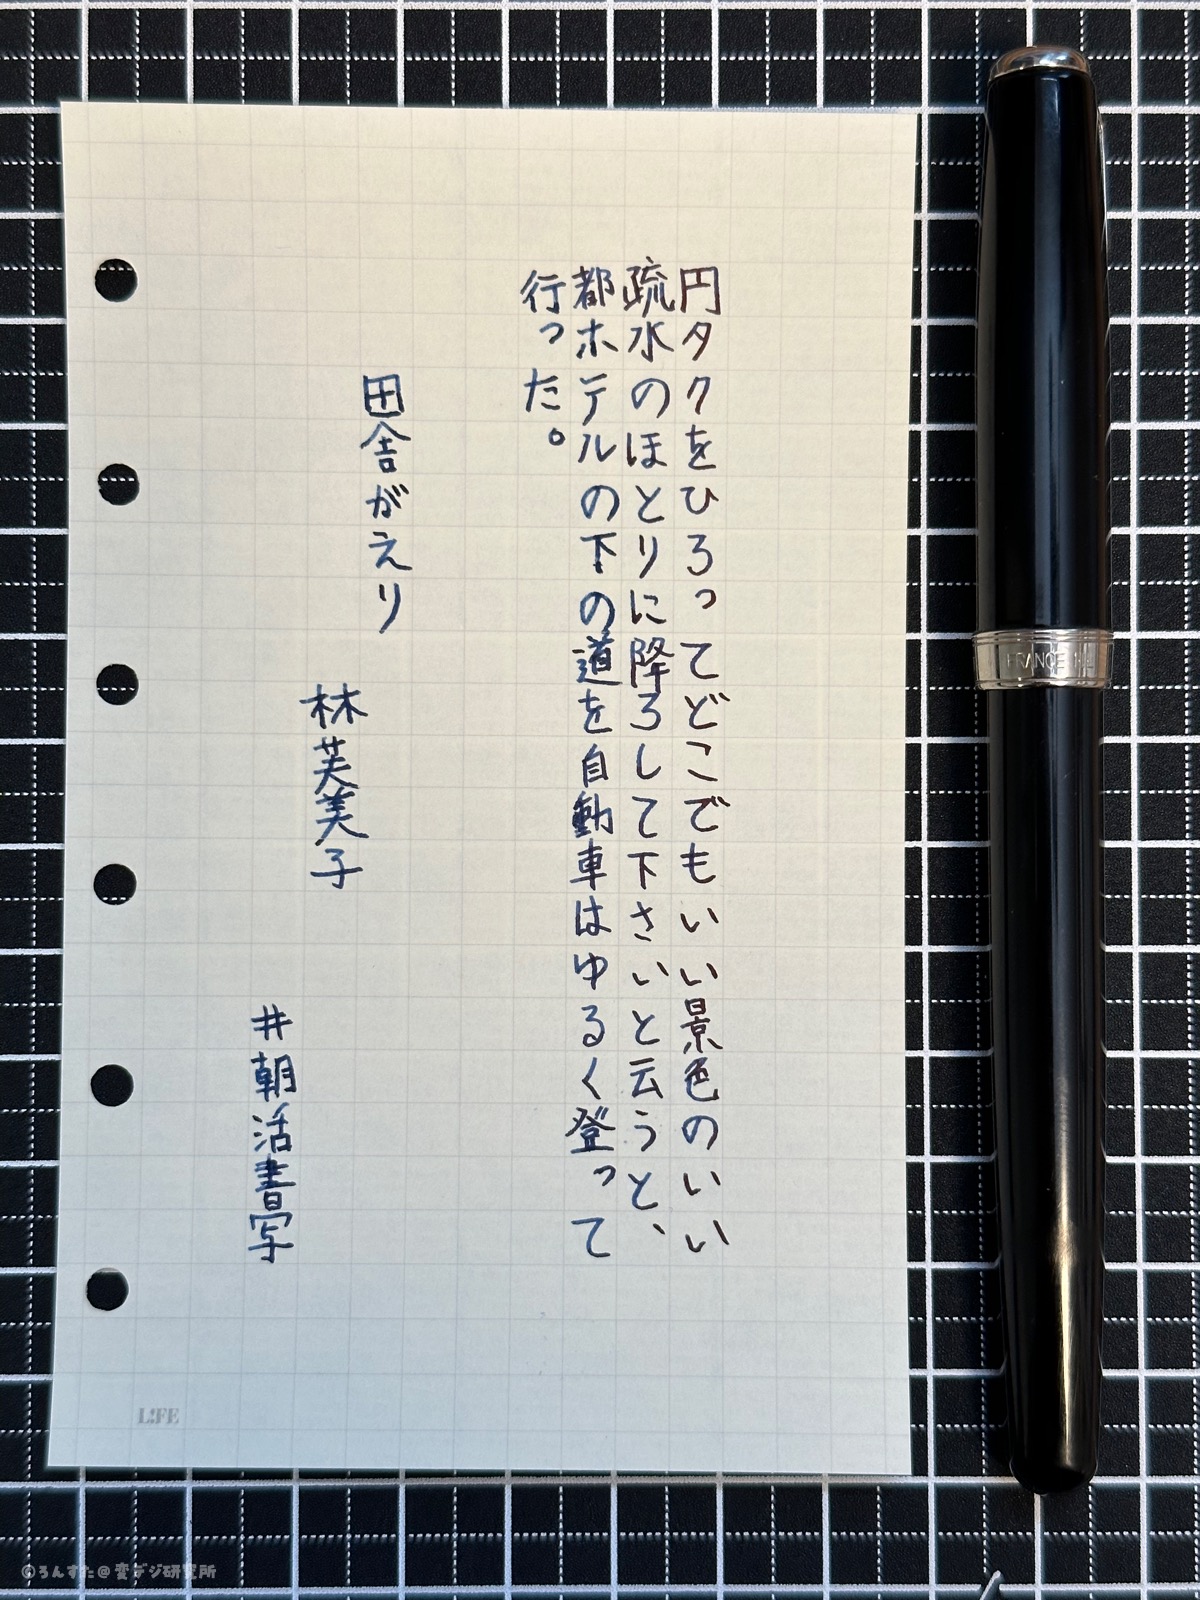 円タクをひろってどこでもいい景色のいい
疏水のほとりに降ろして下さいと云うと、
都ホテルの下の道を自動車はゆるく登って
行った。
田舎がえり
林芙美子
#朝活書写
L!FE
FRANCE
©ろんすた@変デジ研究所